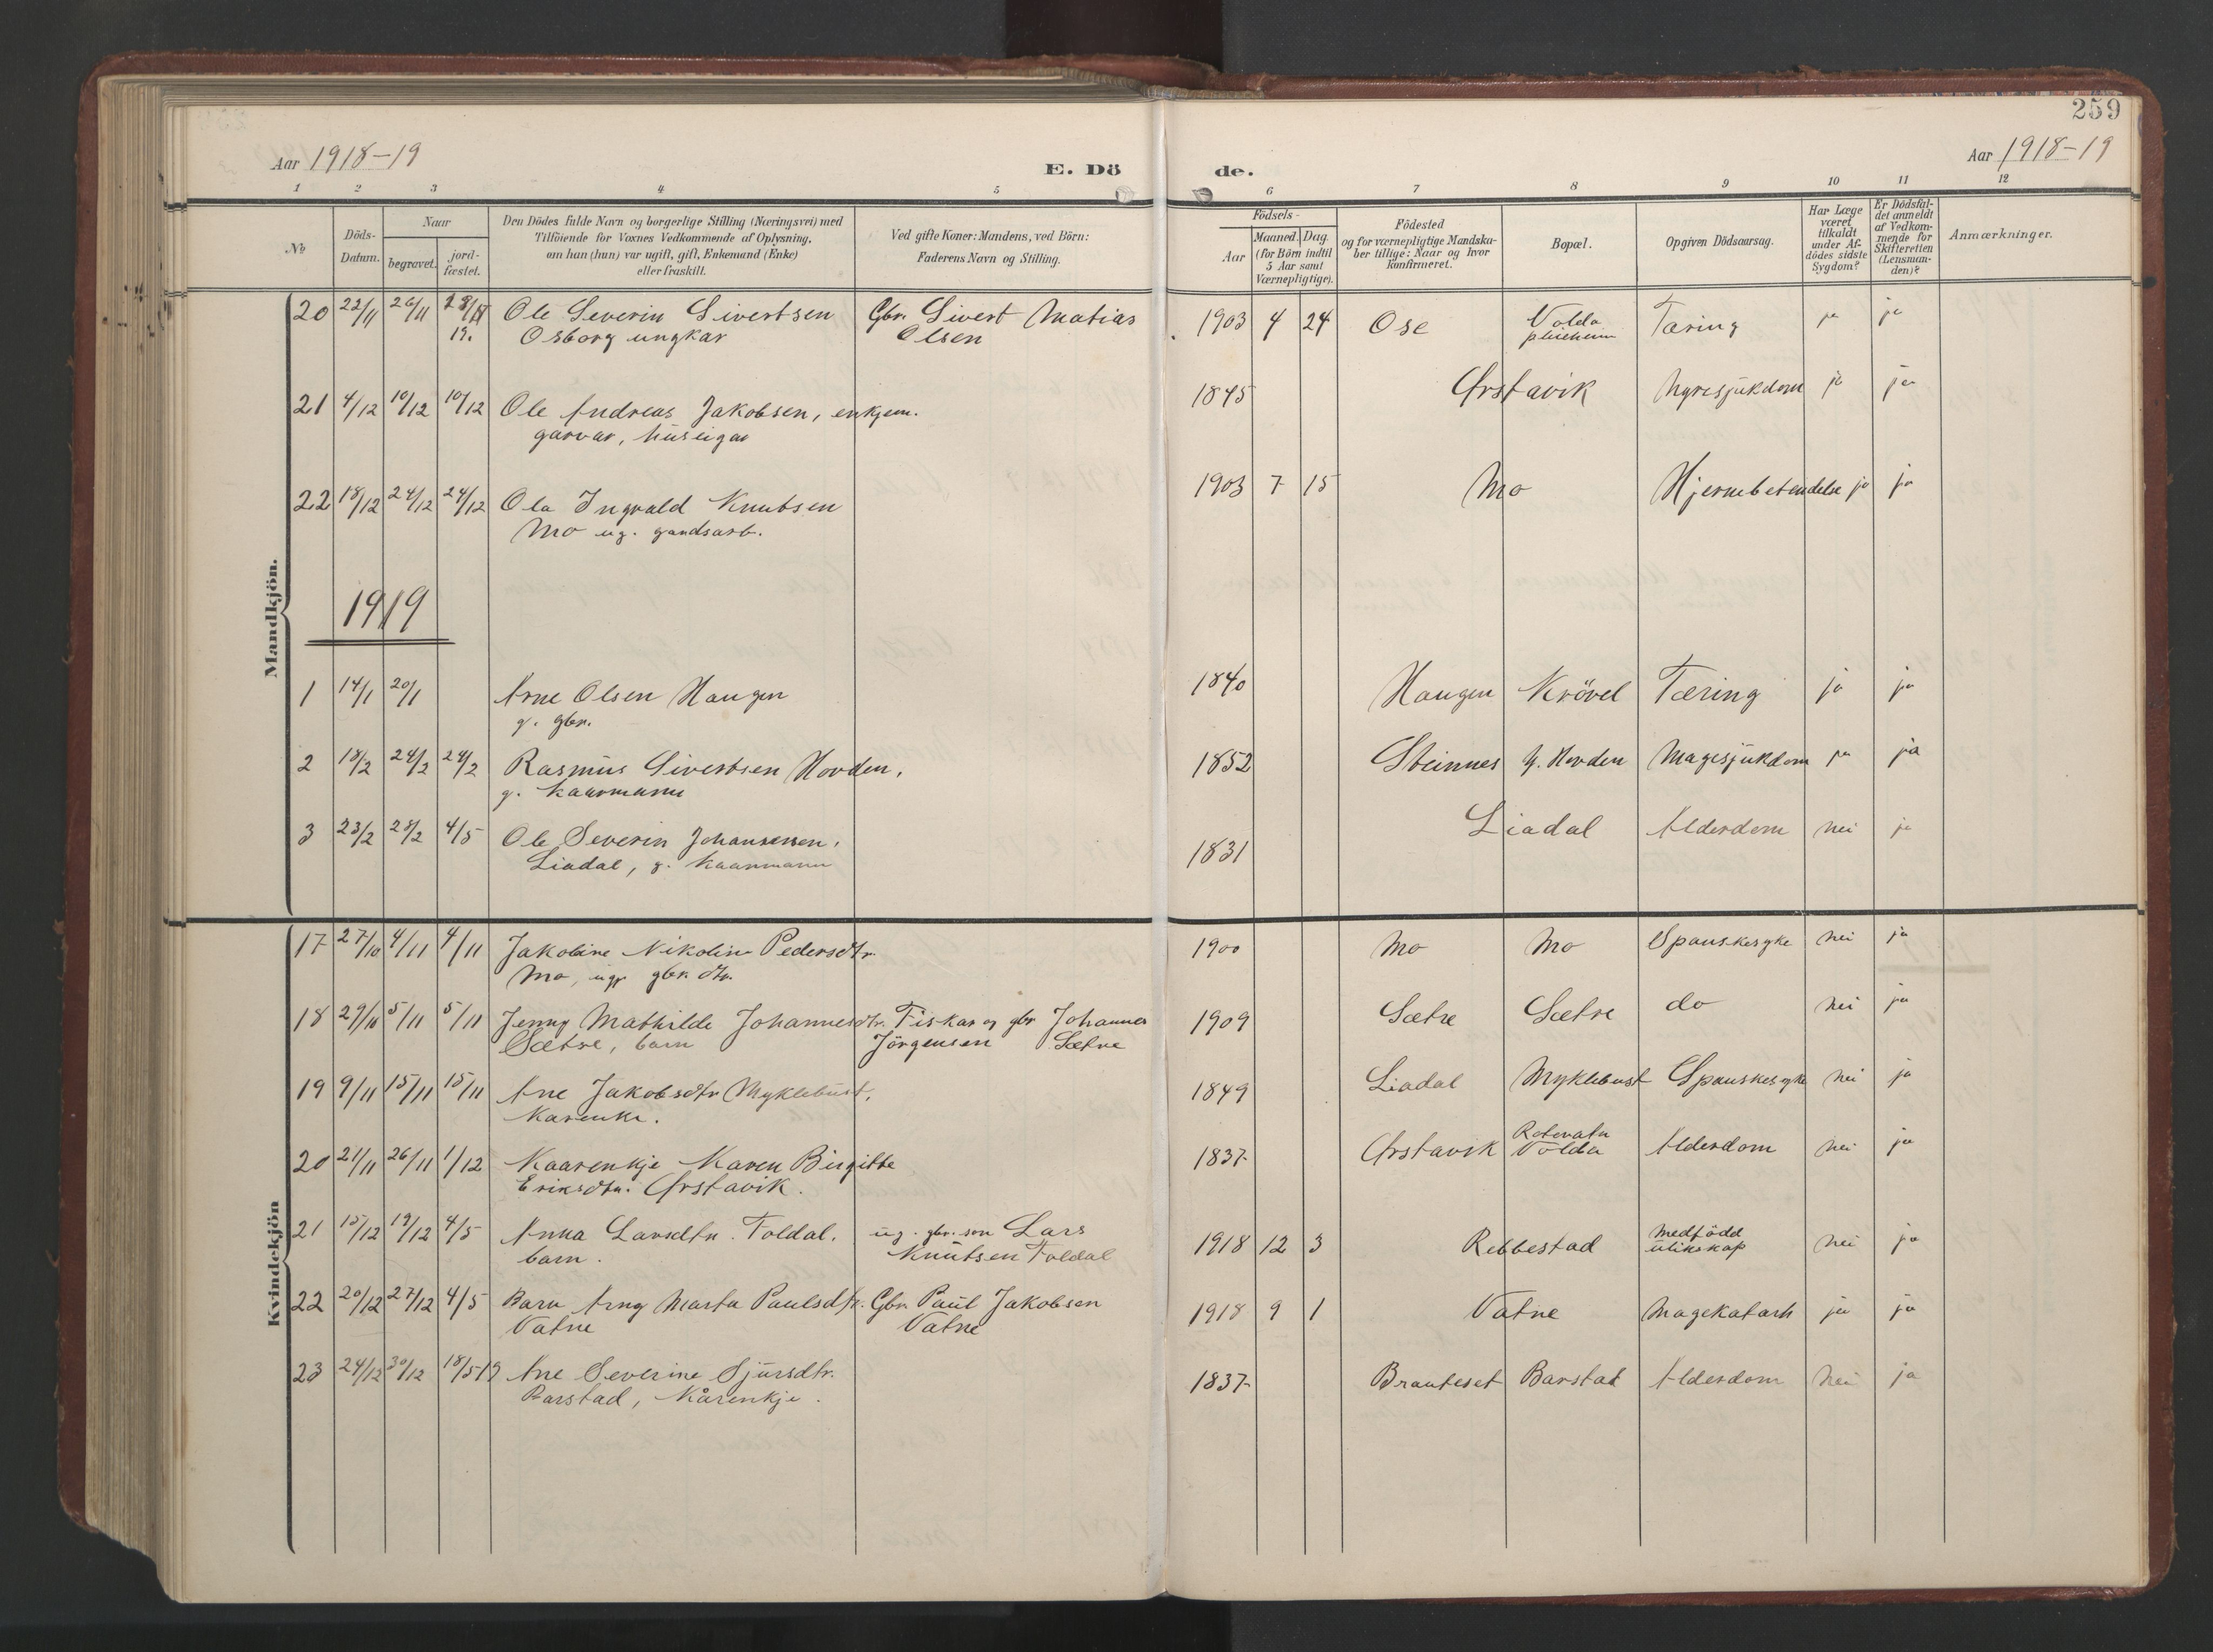 259
Aar 1918-19
E. Dö de.
Aar 1918-19
1 2 3 4 5 6 7 8 9 10 11 12
No
Döds-Datum.
Naar
begravet.
jord-fæstet.
Den Dödes fulde Navn og borgerlige Stilling (Næringsvei) med
Tilföiende for Voxnes Vedkommende af Oplysning,
om han (hun) var ugift, gift, Enkemand (Enke)
eller fraskilt.
Ved gifte Koner: Mandens, ved Börn:
Faderens Navn og Stilling.
Födsels-
Aar
Maaned. Dag.
(for Börn indtil
5 Aar samt
Værnepligtige).
Födested
og for værnepligtige Mandska-
ber tillige: Naar og hvor
konfirmeret.
Bopæl.
Opgiven Dödsaarsag.
Har Læge
været
tilkaldt
under Af-
dödes sidste
Sygdom?
Er Dödsfal-
det anmeldt
af Vedkom-
mende for
Skifteretten
(Lensman-
den)?
Anmærkninger.
Mandkjön.
20 22/11 26/11 Ole Severin Sivertsen Gbr. Sivert Matias 1903 4 24 Ose Volda Tæring ja ja
19. Osborg ungkar Olsen
21 4/12 10/12 10/12 Ole Andreas Jakobsen, enkjem. 1845 Ørstavik Nyresjukdom ja ja
garvar, huseigar
22 18/12 24/12 24/12 Ola Ingvald Knutsen 1903 7 15 Mo Hjernebetendelse ja ja
Mo ug. gaardsarb.
1919
1 14/1 20/1 Arne Olsen Haugen 1840 Haugen Krövel Tæring ja ja
g. gbr.
2 18/2 24/2 24/2 Rasmus Sivertsen Hovden, 1852 Steinnes Y. Hovden Magesjukdom ja ja
g. kaarmann
3 23/2 28/2 4/5 Ole Severin Johansen, 1831 Liadal Alderdom nei ja
Liadal, g. kaarmann
Kvindekjön
17 27/10 4/11 4/11 Jakobine Nikoline Pedersdtr. 1900 Mo Mo Spanskesyke nei ja
Mo, ug. gbr. dtr.
18 29/10 5/11 5/11 Jenny Mathilde Johannesdtr. Fiskar og gbr Johannes 1909 Sætre Sætre do nei ja
Sætre, barn Jörgensen Sætre
19 9/11 15/11 15/11 Ane Jakobsdtr Myklebust, 1849 Liadal Myklebust Spanskesyke nei ja
Karenkr.
20 21/11 26/11 1/12 Kaarenkje Karen Birgitte 1837 Ørstavik Rotevatn Volda Alderdom nei ja
Eriksdtr. Ørstavik.
21 15/12 19/12 4/5 Anna Larsdtr. Foldal, ug. gbr. son Lars 1918 12 3 Rebbestad Medfödd ulikskap nei ja
barn. Knutsen Foldal
22 20/12 27/12 4/5 Barn Arny Marta Paulsdtr. Gbr. Paul Jakobsen 1918 9 1 Vatne Magekatarh ja ja
Vatne Vatne
23 24/12 30/12 18/5 19 Ane Severine Sjursdtr. 1837 Brauteset Barstad Alderdom nei ja
Barstad, Kårenkje.